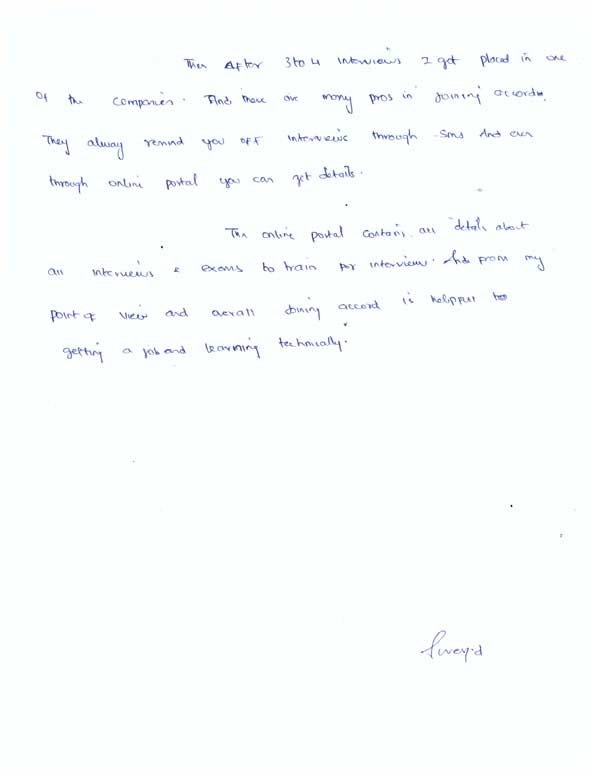 Then After 3 to 4 Interviews I got placed in one
of the companies. And there are many pros in joining accord.
They alway remind you off interviews through sms And even
through online portal you can get details.
The online portal contains all details about
all interviews & exams to train for interview. And from my
point of view and overall joining accord is helpful to
getting a job and learning technically.